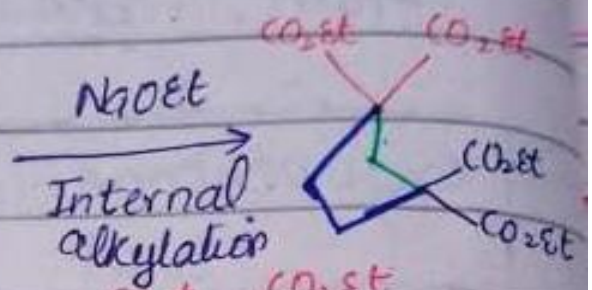 CO2Et CO2Et
NaOEt
Internal
alkylation
CO2Et
CO2Et
CO2Et